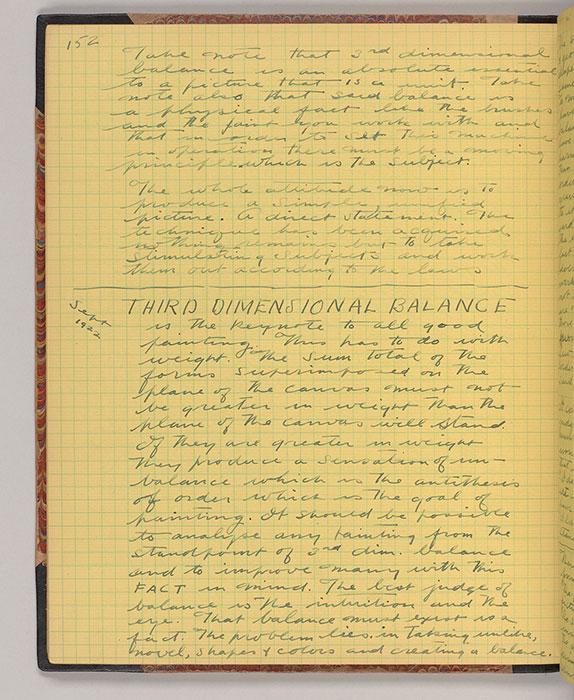 152
Take note that 3rd dimensional
balance is an absolute essential
to a picture that is a unit. Take
note also that said balance is
a physical fact like the brushes
and the paint you work with and
that in order to set this machine
in operation there must be a moving
principle which is the subject.
The whole attitude now is to
produce a simple, unified
picture. A direct statement. The
technique has been acquired
nothing remains but to take
stimulating subjects and work
them out according to the laws
Sept
1922
THIRD DIMENSIONAL BALANCE
is the Keynote to all good
painting. This has to do with
weight. The sum total of the
forms superimposed on the
plane of the canvas must not
be greater in weight than the
plane of the canvas will stand.
If they are greater in weight
they produce a sensation of un-
balance which is the antithesis
of order which is the goal of
painting. It should be possible
to analyse any painting from the
standpoint of 3rd dim. balance
and to improve many with this
FACT in mind. The best judge of
balance is the intuition and the
eye. That balance must exist is a
fact. The problem lies in taking unlike,
novel, shapes & colors and creating a balance.